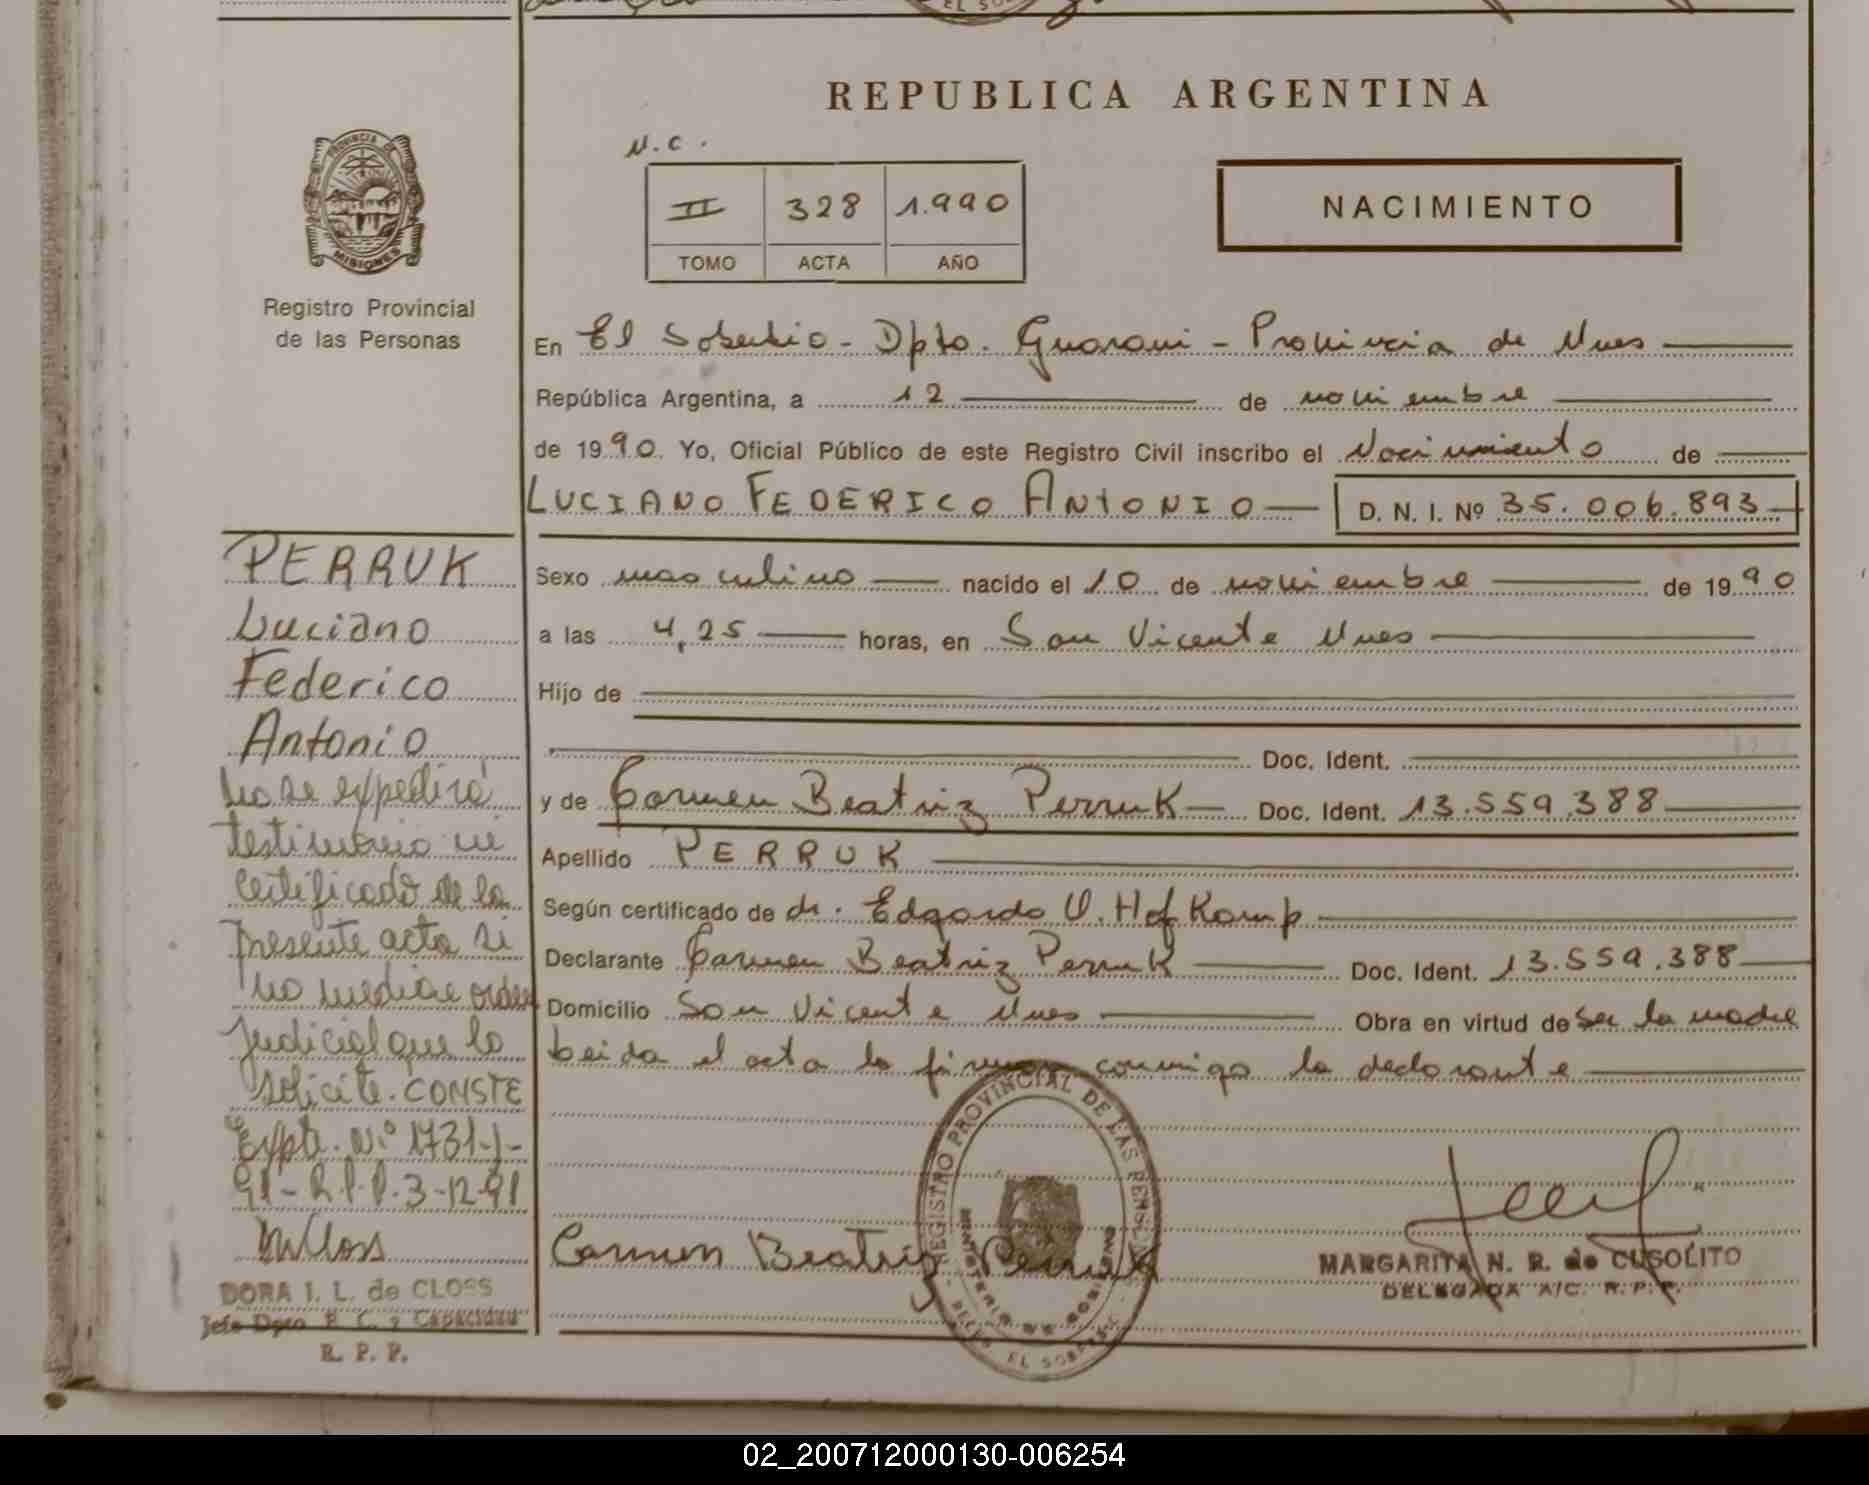 REPUBLICA ARGENTINA
PROVINCIA DE
MISIONES
Registro Provincial
de las Personas
N.C.
II 328 1.990
TOMO ACTA AÑO
NACIMIENTO
En El Soberbio - Dpto. Guarani - Provincia de Mnes
República Argentina, a 12 de noviembre
de 1990. Yo, Oficial Público de este Registro Civil inscribo el Nacimiento de
LUCIANO FEDERICO ANTONIO D. N. I. Nº 35.006.893
Sexo masculino nacido el 10 de noviembre de 1990
a las 4,25 horas, en San Vicente Mnes
Hijo de
Doc. Ident.
y de Carmen Beatriz Perruk Doc. Ident. 13.559.388
Apellido PERRUK
Según certificado de dr. Edgardo O. Hofkamp
Declarante Carmen Beatriz Perruk Doc. Ident. 13.559.388
Domicilio San Vicente Mnes Obra en virtud de ser la madre
Leida el acta la firma conmigo la declarante
PERRUK
Luciano
Federico
Antonio
No se expedirá
testimonio ni
certificado de la
presente acta si
no mediare orden
judicial que lo
solicite. CONSTE
Expte. Nº 1731-J-
91-R.P.P. 3-12-91
DORA I. L. de CLOSS
Jefe Dpto E. C. y Capacidad
R. P. P.
Carmen Beatriz Perruk
REGISTRO PROVINCIAL DE LAS PERSONAS
MINISTERIO DE GOBIERNO
EL SOBERBIO
MARGARITA N. R. de CUSOLITO
DELEGADA A/C. R. P. P.
02_200712000130-006254